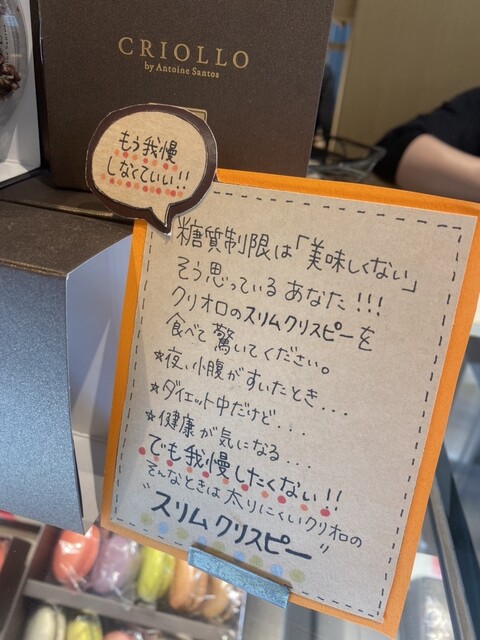 CRIOLLO
by Antoine Santos
もう我慢
しなくていい!!
糖質制限は「美味しくない」
そう思っているあなた!!!
クリオロのスリムクリスピーを
食べて驚いてください。
☆夜、小腹がすいたとき...
☆ダイエット中だけど...
☆健康が気になる....
でも我慢したくない!!
そんなときは太りにくいクリオロの
"スリムクリスピー"